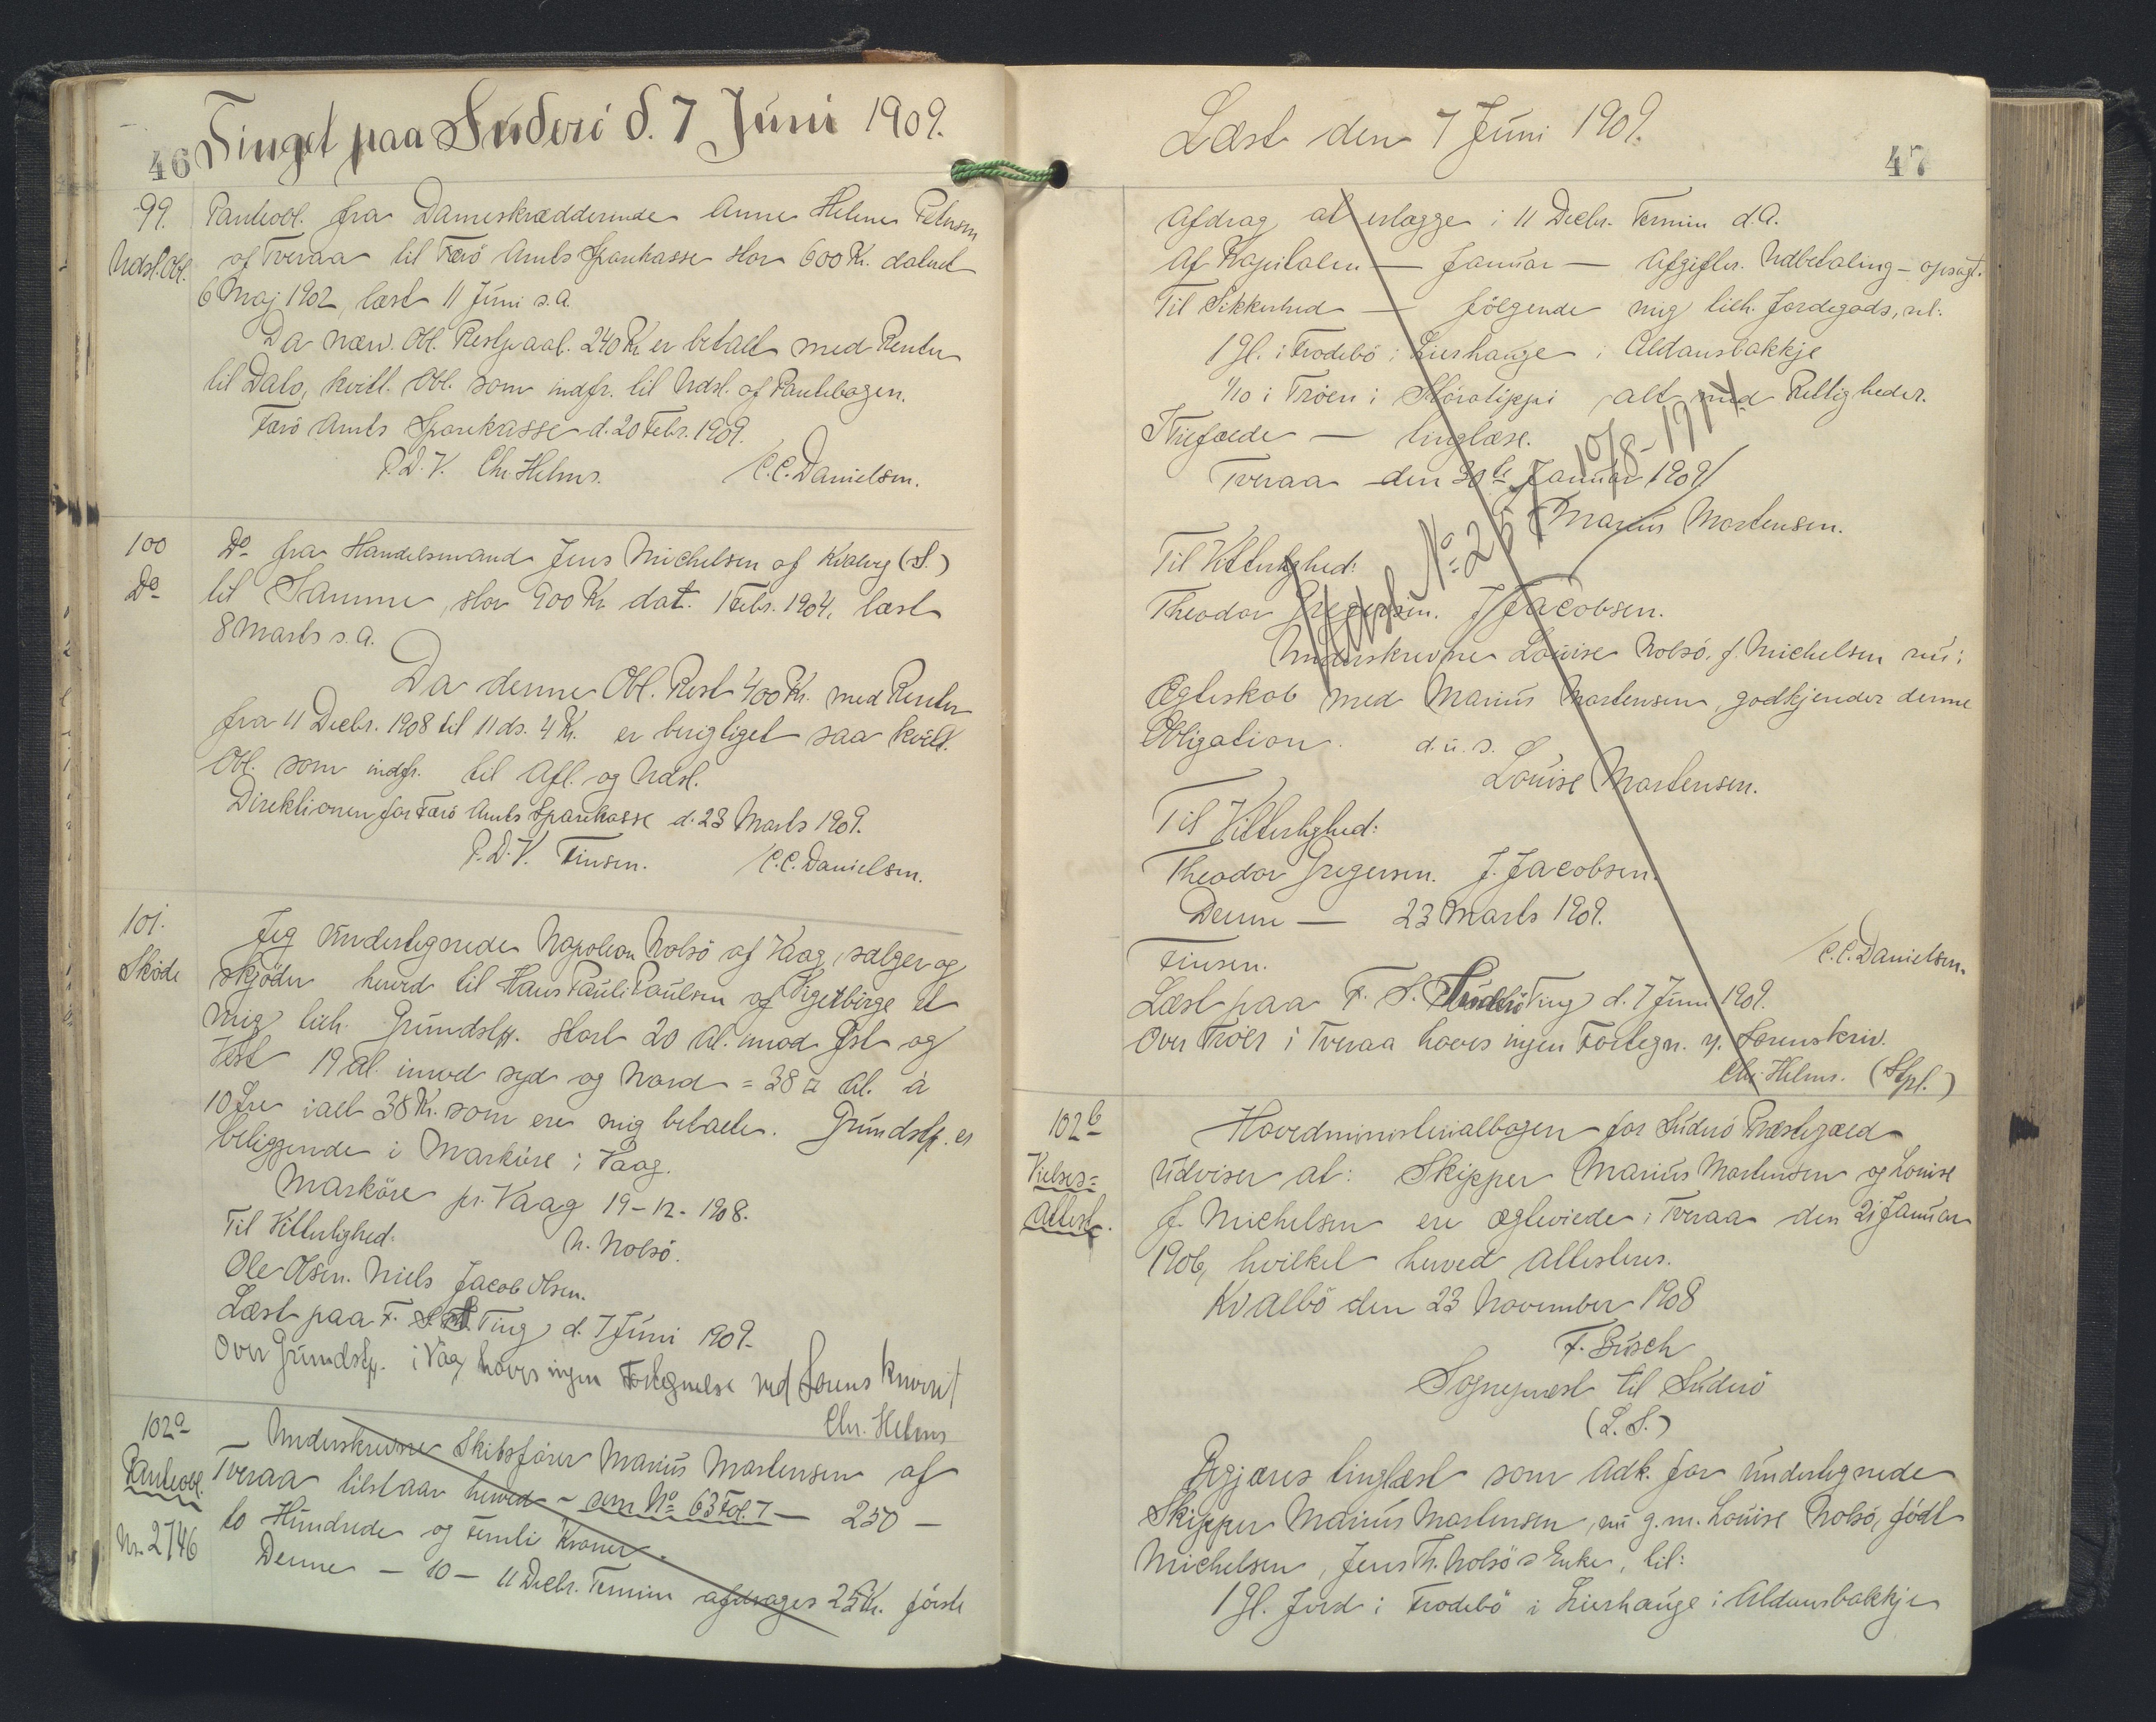 Tinget paa Suderö d. 7 Juni 1909.
46
99.
Udsl. Obl.
Panteobl. fra Dameskrædderinde Anne Helene Petersen
af Tveraa til Færö Amts Sparekasse stor 600 Kr. dateret
6 Maj 1902, læst 11 Juni s.A.
Da nærv. Obl. Restpaal. 240 Kr er betalt med Renter
til Dato, kvitt. Obl. som indfr. til Udsl. af Pantebogen.
Færö Amts Sparekasse d. 20 Febr. 1909.
P.D.V. Chr. Helms. C.C. Danielsen.
100
Do
Do fra Handelsmand Jens Michelsen af Kvalvig (S.)
til Samme, stor 900 Kr. dat. 1 Febr. 1904, læst
8 Marts s.A.
Da denne Obl. Rest 400 Kr. med Renter
fra 11 Decbr. 1908 til 11 ds. 4 Kr. er berigtiget saa kvitt.
Obl. som indfr. til Afl. og Udsl.
Direktionen for Færö Amts Sparekasse d. 23 Marts 1909.
P.D.V. Finsen. C.C. Danielsen.
101.
Sköde
Jeg undertegnede Napoleon Nolsö af Vaag, sælger og
skjöder herved til Hans Pauli Paulsen af Vigerbirge et
mig tilh. Grundstk. stort 20 Al. imod Öst og
Vest 19 Al. imod syd og Nord = 38 □ Al. à
10 Öre ialt 38 Kr. som ere mig betalte. Grundstk. er
beliggende i Marköre i Vaag.
Marköre pr. Vaag 19-12-1908.
Til Vitterlighed: N. Nolsö.
Ole Olsen. Niels Jacob Olsen.
Læst paa F. S. S. Ting d. 7 Juni 1909.
Over Grundstk. i Vaag haves ingen Fortegnelse ved Sorenskriveriet
Chr. Helms
102a
Panteobl.
Nr. 2746
Underskrevne Skibsförer Marius Mortensen af
Tveraa tilstaar herved – som No 63 Fol. 7 – 250 –
to Hundrede og femti Kroner.
Denne – 10 – 11 Decbr. Termin afdrages 25 Kr. förste
Læst den 7 Juni 1909.
47
Afdrag at erlægge i 11 Decbr. Termin d.A.
Af Kapitalen – Januar – Afgifter. Udbetaling – opsagt.
Til Sikkerhed – fölgende mig tilh. Jordegods, nl:
1 Gl. i Frodebö i Lierhauge i Aldansbakkje
1/10 i Tröen i Störatippi alt med Rettigheder.
I Tilfælde – tinglæse.
Tveraa den 30te Januar 1909
Marius Mortensen.
Udsl. No 257 10/8-1914
Til Vitterlighed:
Theodor Gregersen. J. Jacobsen.
Underskrevne Louise Nolsö, f. Michelsen nu i
Ægteskab med Marius Mortensen, godkjender denne
Obligation. d.u.s.
Louise Mortensen.
Til Vitterlighed:
Theodor Gregersen. J. Jacobsen.
Denne – 23 Marts 1909.
Finsen. C.C. Danielsen.
Læst paa F. S. Suderö Ting d. 7 Juni 1909.
Over Tröer i Tveraa haves ingen Fortegn. v. Sorenskriv.
Chr. Helms. (Stpl.)
102b
Vielses=
attest.
Hovedministerialbogen for Suderö Præstegæld
udviser at: Skipper Marius Mortensen og Louise
f. Michelsen ere ægteviede i Tveraa den 21 Januar
1906, hvilket herved attesteres.
Kvalbö den 23 November 1908
F. Busch
Sognepræst til Suderö
(L.S.)
Begjæres tinglæst som Adk. for undertegnede
Skipper Marius Mortensen, nu g.m. Louise Nolsö, födt
Michelsen, Jens Th. Nolsö's Enke, til:
1 Gl. Jord i Frodebö i Lierhauge i Aldansbakkje